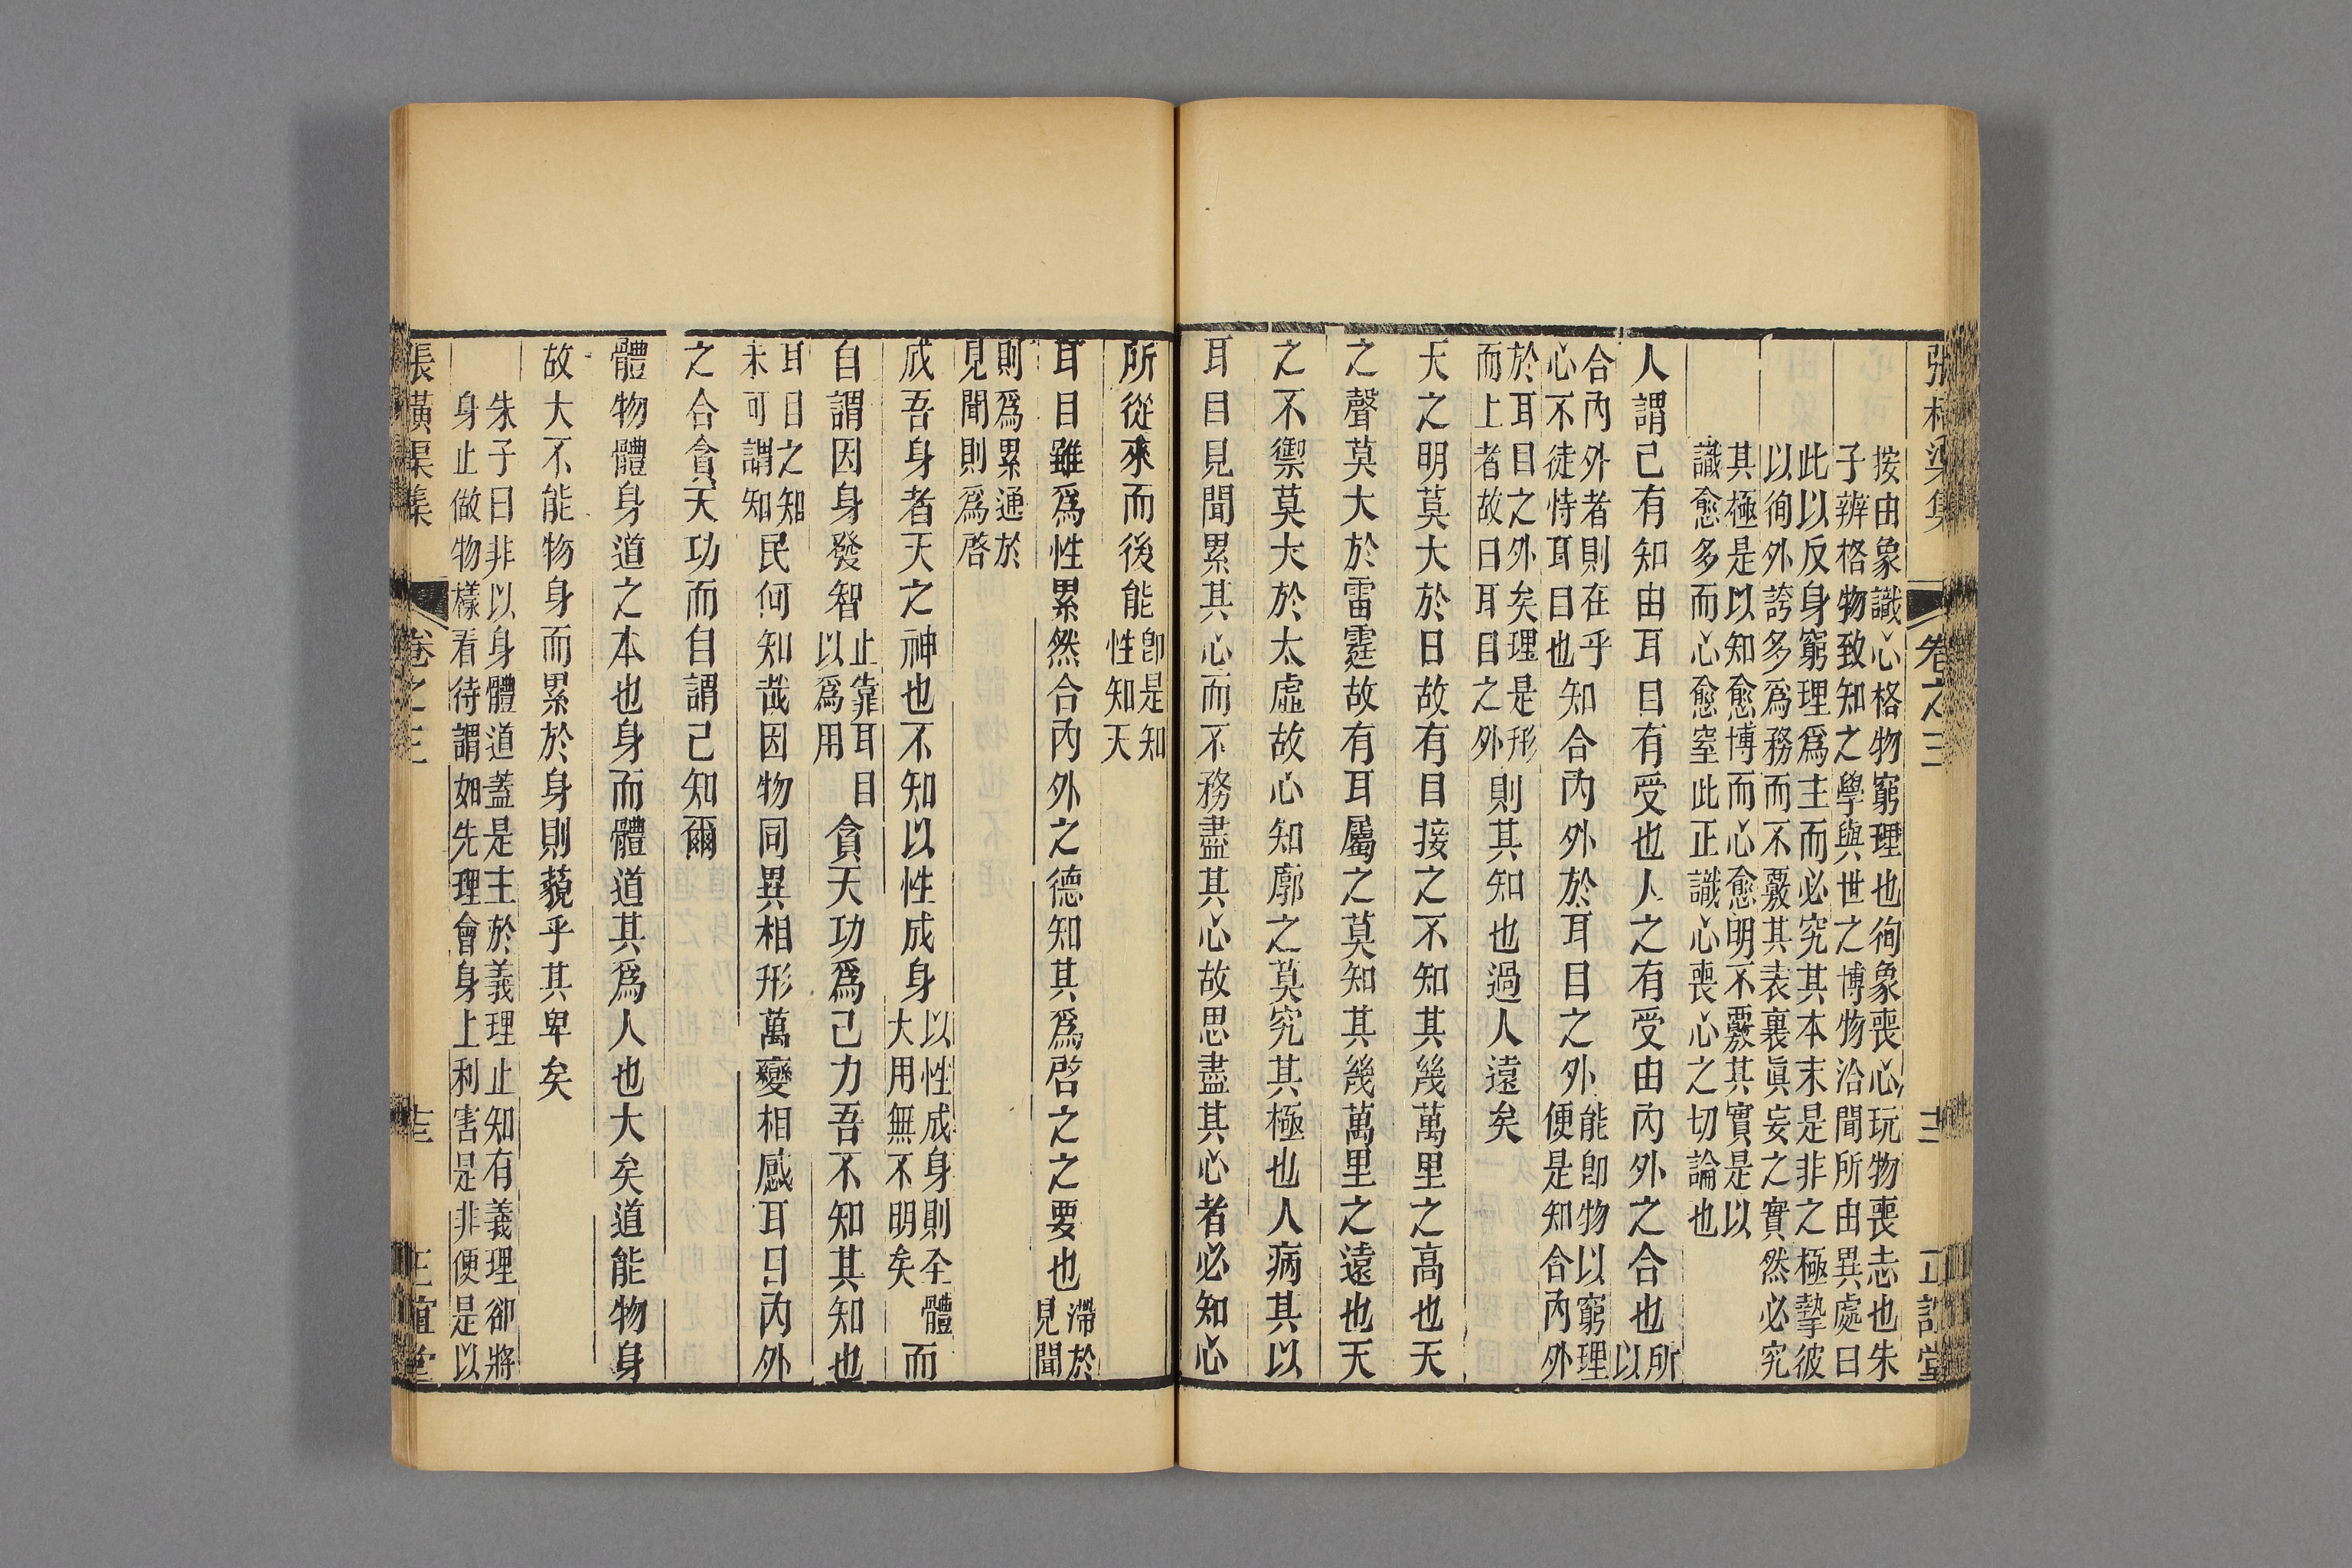 張橫渠集 卷之三 三 正誼堂
按由象識心格物窮理也徇象喪心玩物喪志也朱
子辨格物致知之學與世之博物洽聞所由異處曰
此以反身窮理爲主而必究其本末是非之極摯彼
以徇外誇多爲務而不覈其表裏眞妄之實然必究
其極是以知愈博而心愈明不覈其實是以
識愈多而心愈窒此正識心喪心之切論也
人謂己有知由耳目有受也人之有受由內外之合也所以
合內外者則在乎心不徒恃耳目也知合內外於耳目之外能即物以窮理便是知合內外
於耳目之外矣理是形而上者故曰耳目之外則其知也過人遠矣
天之明莫大於日故有目接之不知其幾萬里之高也天
之聲莫大於雷霆故有耳屬之莫知其幾萬里之遠也天
之不禦莫大於太虛故心知廓之莫究其極也人病其以
耳目見聞累其心而不務盡其心故思盡其心者必知心
所從來而後能即是知性知天
耳目雖爲性累然合內外之德知其爲啓之之要也滯於見聞
則爲累通於見聞則爲啓
成吾身者天之神也不知以性成身以性成身則全體大用無不明矣而
自謂因身發智止靠耳目以爲用貪天功爲己力吾不知其知也
耳目之知未可謂知民何知哉因物同異相形萬變相感耳目內外
之合貪天功而自謂己知爾
體物體身道之本也身而體道其爲人也大矣道能物身
故大不能物身而累於身則藐乎其卑矣
朱子曰非以身體道蓋是主於義理止知有義理卻將
身止做物樣看待謂如先理會身上利害是非便是以
張橫渠集 卷之三 三 正誼堂